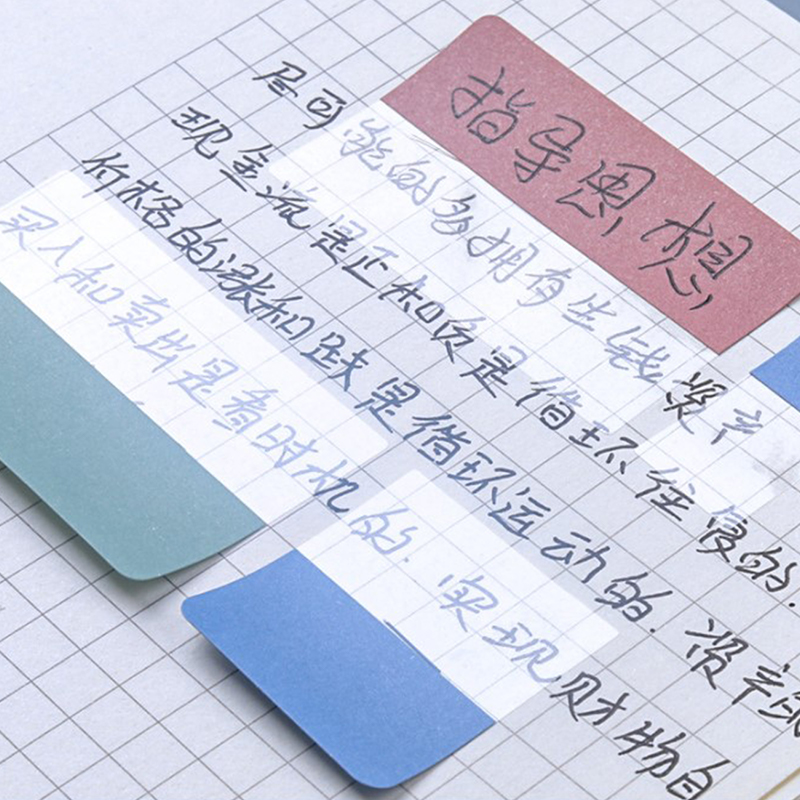 指导思想
尽可能的多拥有生钱资产
现金流是正和负是循环往复的.
价格的涨和跌是循环运动的.资产
买入和卖出是看时机的.实现财物自